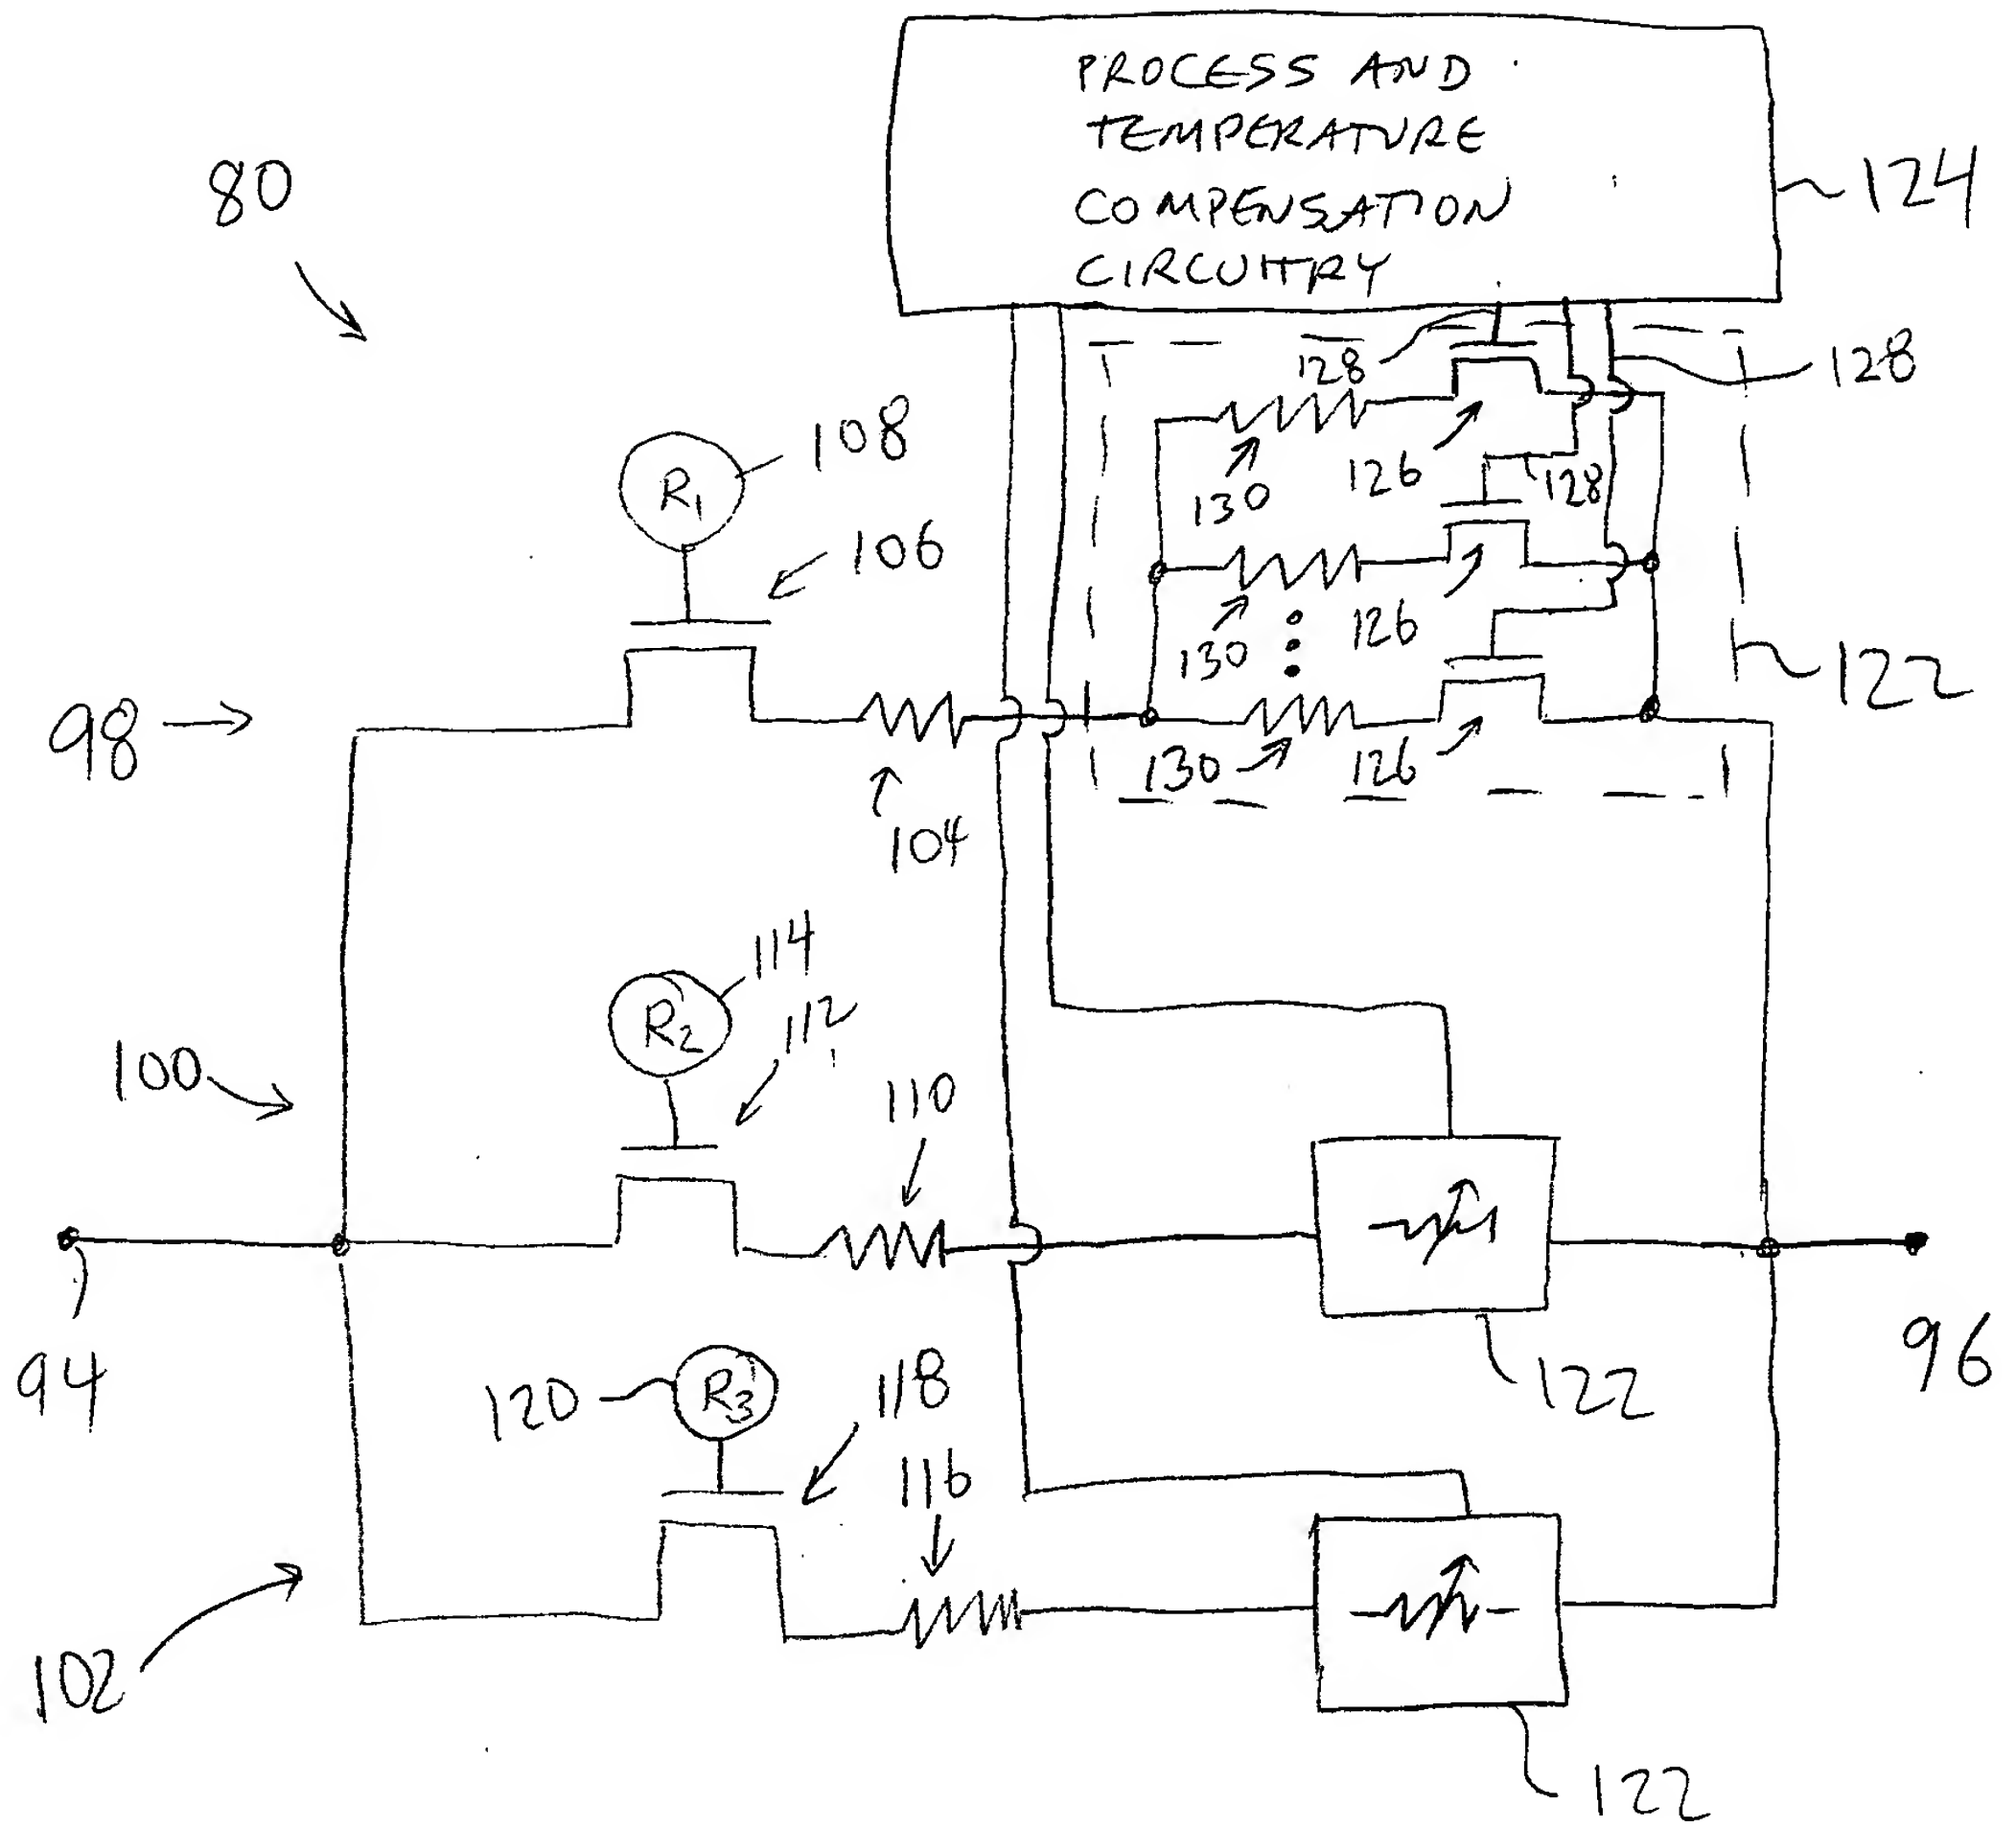 PROCESS AND
TEMPERATURE
COMPENSATION
CIRCUITRY
124
80
128
128
108
R1
126
128
130
106
130
126
122
98
130
126
104
114
R2
112
100
110
94
96
122
120
R3
118
116
102
122